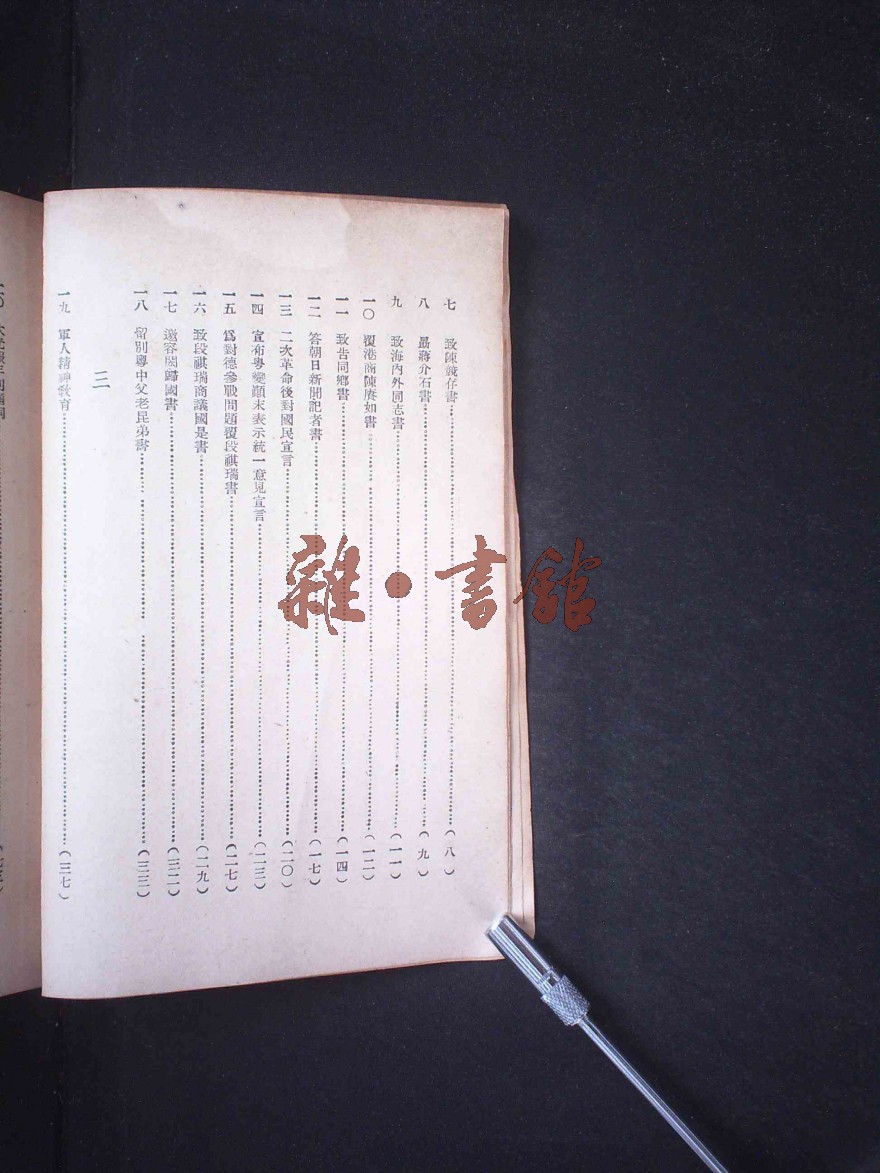 七 致陳競存書（八）
八 勗蔣介石書（九）
九 致海內外同志書（一一）
一〇 覆港商陳賡如書（一二）
一一 致告同鄉書（一四）
一二 答朝日新聞記者書（一七）
一三 二次革命後對國民宣言（二〇）
一四 宣布粵變顚末表示統一意見宣言（二三）
一五 爲對德參戰問題覆段祺瑞書（二七）
一六 致段祺瑞商議國是書（二九）
一七 邀容閎歸國書（三二）
一八 留別粵中父老昆弟書（三三）
三
一九 軍人精神敎育（三七）
二〇
雜·書館